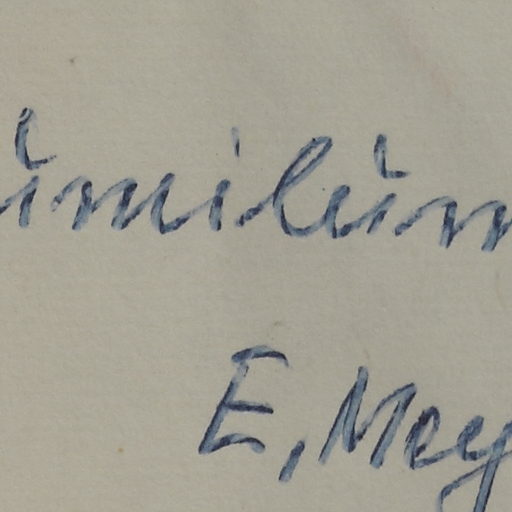 umilum
E, Mey